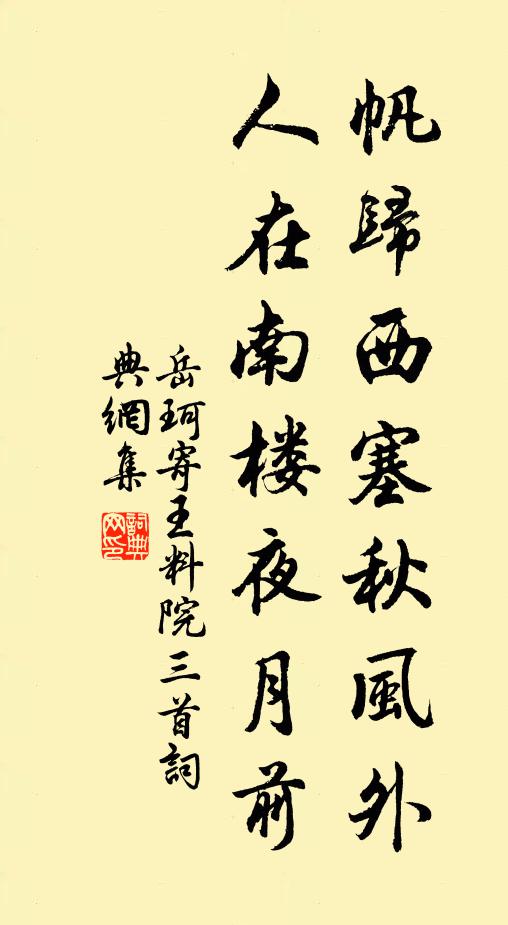 帆歸西塞秋風外
人在南楼夜月前
岳珂寄王料院三首詞
典網集
詞典网印